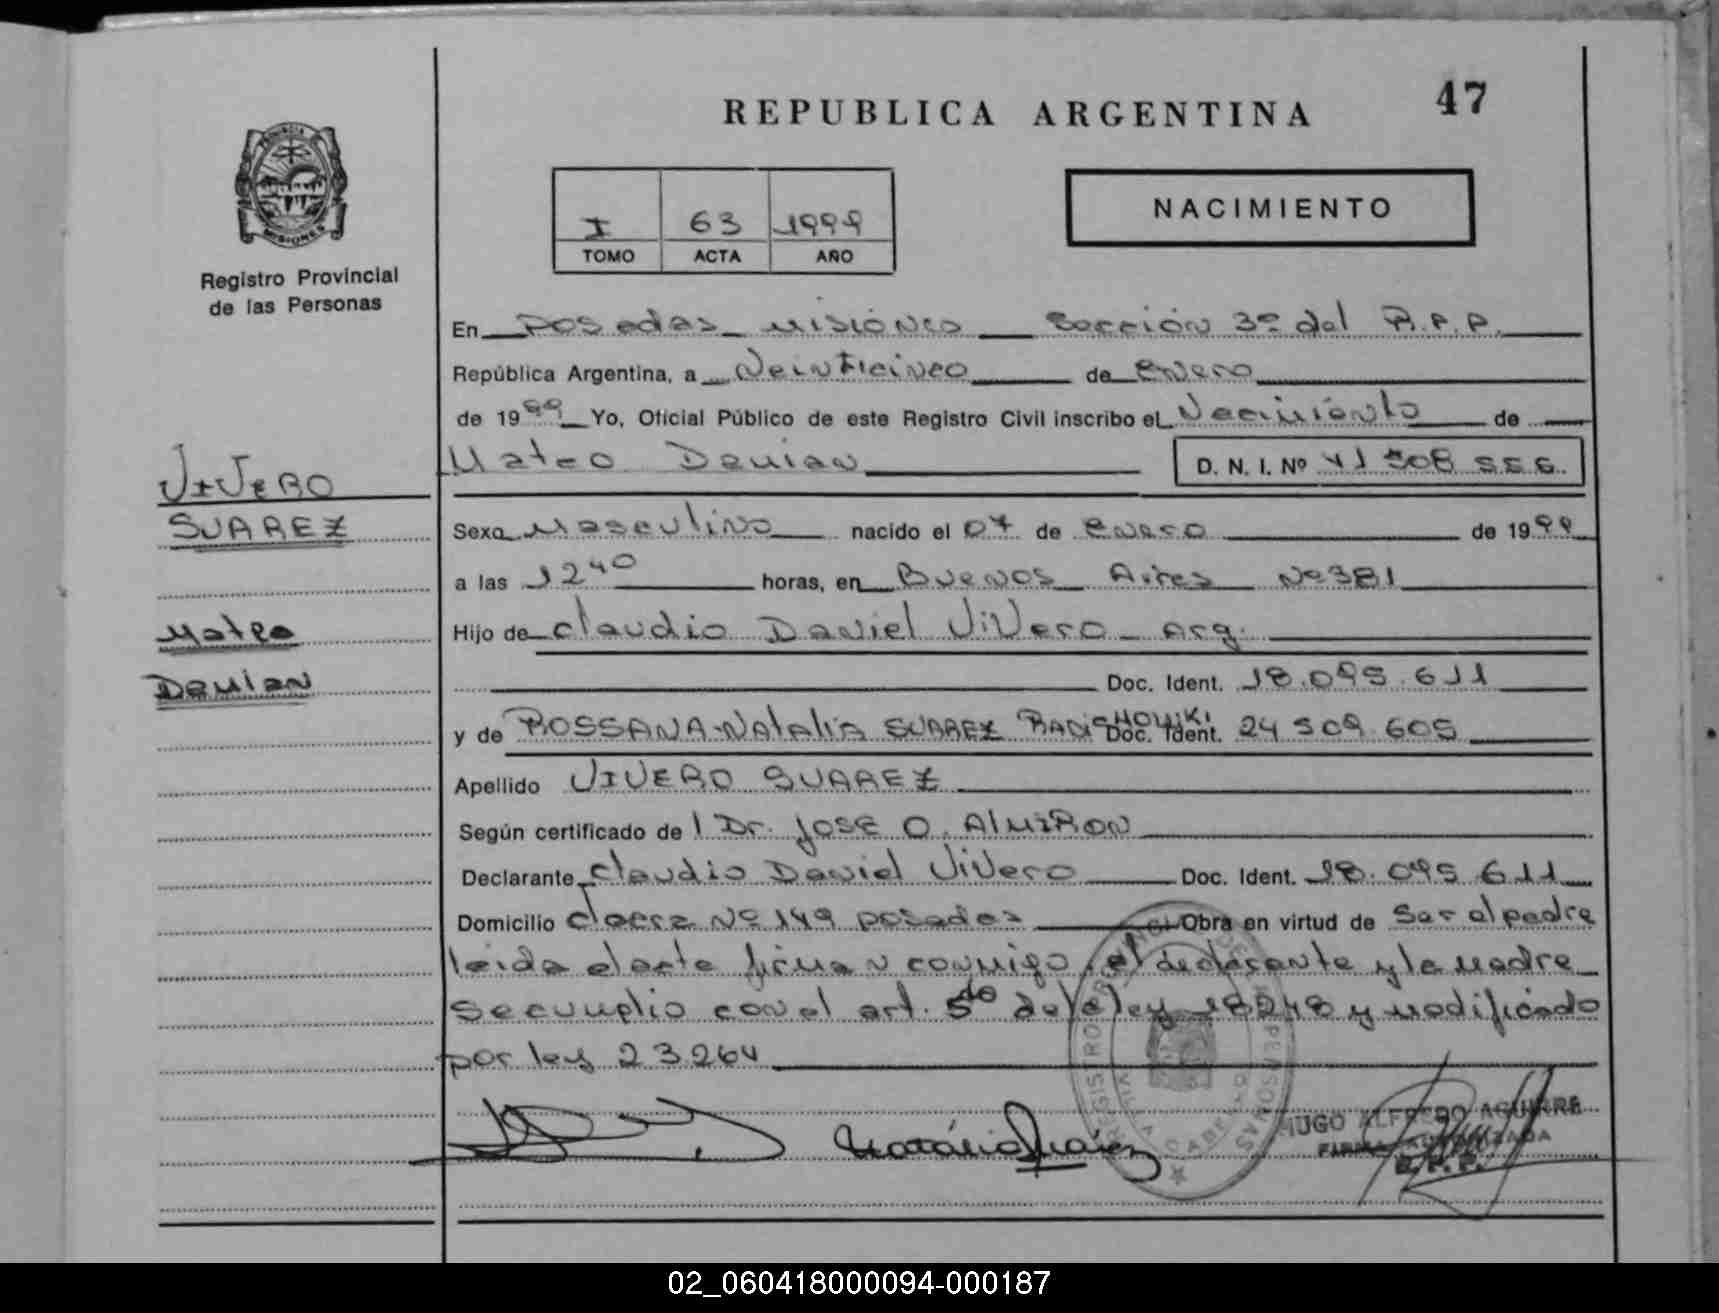 REPUBLICA ARGENTINA
47
PROVINCIA
MISIONES
Registro Provincial
de las Personas
I 63 1999
TOMO ACTA AÑO
NACIMIENTO
En Posadas Misiones Sección 3º del R.P.P.
República Argentina, a Veinticinco de enero
de 1999 Yo, Oficial Público de este Registro Civil inscribo el Nacimiento de
Mateo Demian D. N. I. Nº 41 508 556
VIVERO
SUAREZ
Mateo
Demian
Sexo Masculino nacido el 07 de enero de 1999
a las 12 40 horas, en Buenos Aires Nº 381
Hijo de Claudio Daniel ViVero Arg.
Doc. Ident. 18.095.611
y de ROSSANA NATALIA SUAREZ Doc. Ident. 24 309.605
Apellido VIVERO SUAREZ
Según certificado de Dr. JOSE O. AlMIRON
Declarante Claudio Daniel ViVero Doc. Ident. 18.095 611
Domicilio Nº 149 posadas Obra en virtud de Ser el padre
leida el acta firman conmigo el declarante y la madre
Se cumplio con el art. 5to de la ley 18248 y modificado
por ley 23.264
HUGO ALFREDO AGUIRRE
FIRMA AUTORIZADA
R. P. P.
02_060418000094-000187